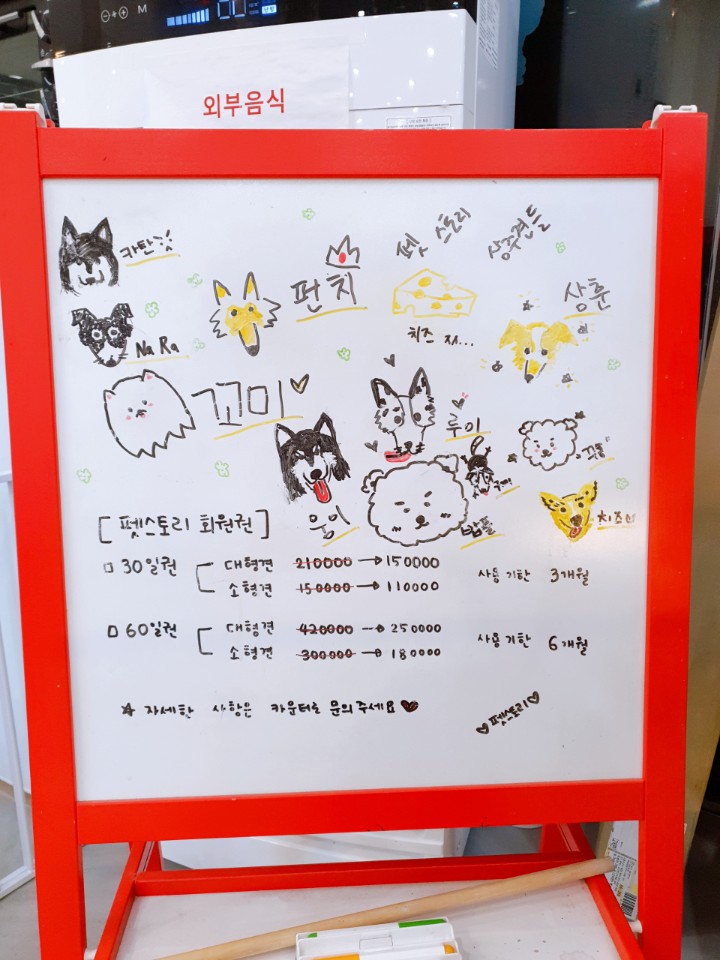 M
외부음식
펫 스토리 상주견들
카탄
펀치
상훈
치즈
NaRa
꼬미
루이
웅이
밥풀
치즈
[펫스토리 회원권]
□ 30일권 대형견 210000 → 150000 사용 기한 3개월
소형견 150000 → 110000
□ 60일권 대형견 420000 → 250000 사용 기한 6개월
소형견 300000 → 180000
☆ 자세한 사항은 카운터로 문의주세요 ♥
♥펫스토리♥